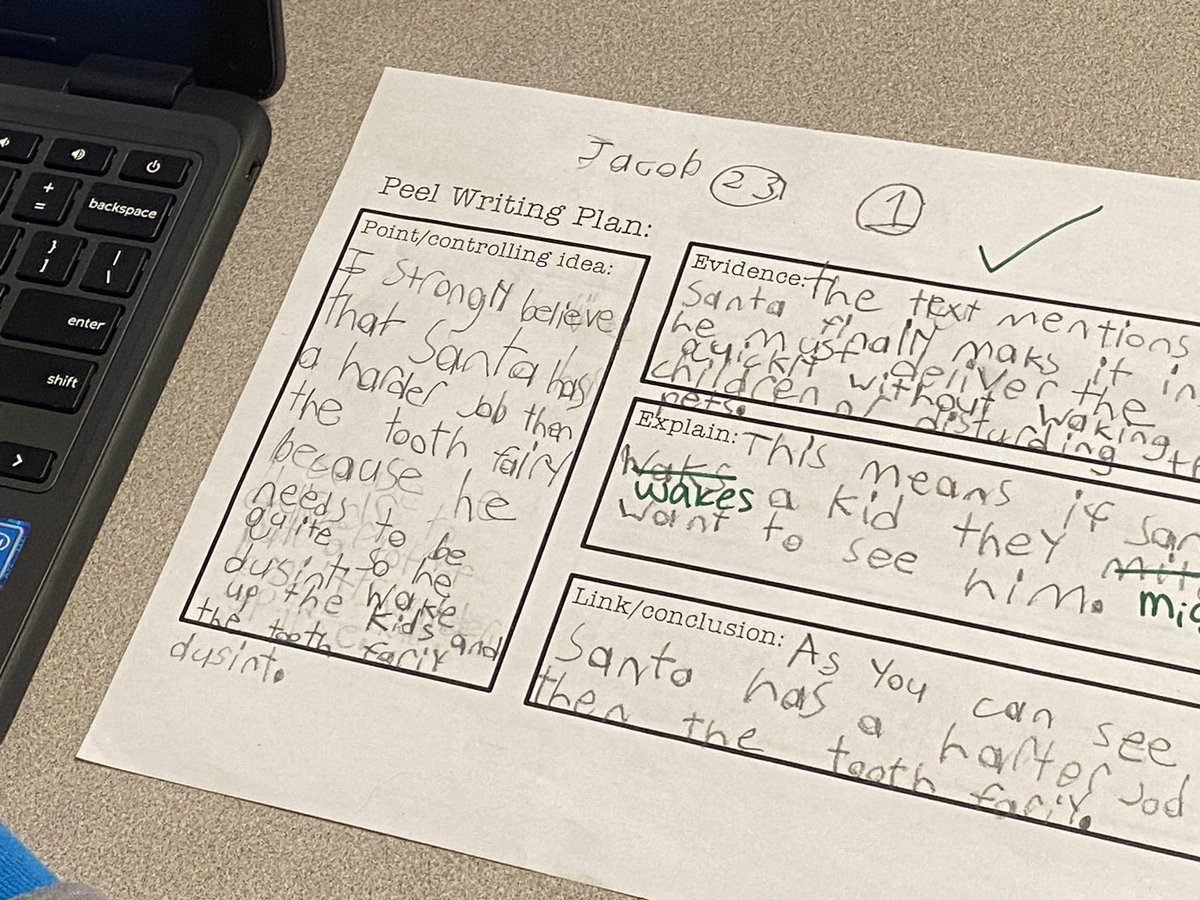 backspace
+
=
}
]
|
\
enter
shift
>
Jacob 23 1
Peel Writing Plan:
Point/controlling idea:
I strongly believe
that Santa has
a harder Job then
the tooth fairy
because he
needs to be
quite so he
dusint wake
up the kids and
the tooth fariy
dusint.
Evidence: the text mentions
Santa finally maks it in
he must deliver the
quickly without waking th
children or disturding
pets.
Explain: This means if San
waks
wakes a kid they mi
want to see him.
Link/conclusion: As You can see
Santa has a harter Jod
then the tooth fariy.